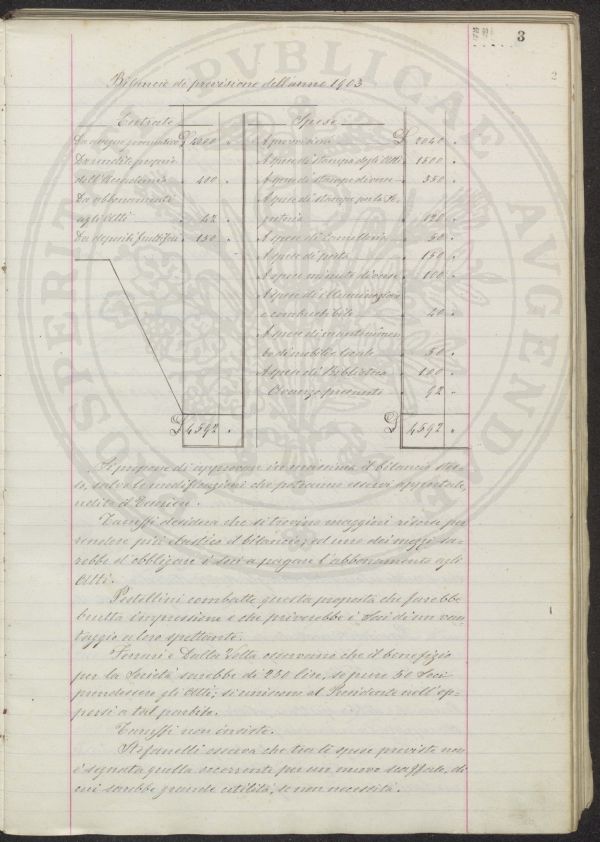 3
2
PROSPERITATI PUBLICAE AUGENDAE
Bilancio di previsione dell'anno 1903
Entrate
Spese
Da assegno governativo £ 4000 „
Da rendite proprie
dell'Accademia 400 „
Da abbonamenti
agli Atti „ 42 „
Da depositi fruttiferi „ 150 „
£ 4592 „
A provvisioni £ 2040 „
A spese di stampa degli Atti „ 1500 „
A spese di stampe diverse „ 350 „
A spese di stampa per la Se-
greteria „ 120 „
A spese di Cancelleria „ 50 „
A spese di posta „ 150 „
A spese minute diverse „ 100 „
A spese di illuminazione
e combustibile „ 40 „
A spese di mantenimen-
to di mobili e locale „ 50 „
A spese di Biblioteca „ 100 „
Avanzo presunto „ 92 „
£ 4592 „
Si propone di approvare in massima il bilancio stes-
so, salvo le modificazioni che potranno esservi apportate,
udita l'Unione.
Taruffi desidera che si trovino maggiori risorse per
rendere più elastico il bilancio; ed uno dei mezzi sa-
rebbe d'obbligare i soci a pagare l'abbonamento agli
Atti.
Pestellini combatte questa proposta che farebbe
brutta impressione e che priverebbe i Soci di un van-
taggio a loro spettante.
Ferrari e Dalla Volta osservano che il benefizio
per la Società sarebbe di 250 lire, se pure 50 Soci
prendessero gli Atti; si uniscono al Presidente nell'op-
porsi a tal partito.
Taruffi non insiste.
Stefanelli osserva che tra le spese previste non
è segnata quella occorrente per un nuovo scaffale, di
cui sarebbe grande utilità, se non necessità.